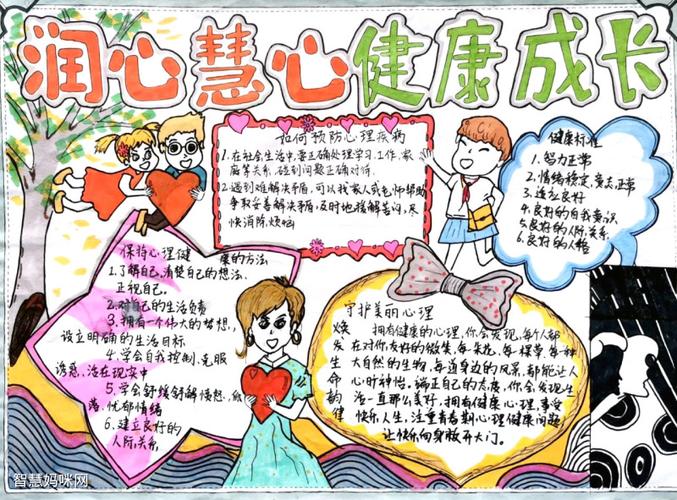 润心慧心健康成长
如何预防心理疾病
1.在社会生活中,要正确处理学习、工作、家
庭等关系,碰到问题正确对待。
2.遇到难解决矛盾,可以找家人或老师帮助
争取妥善解决矛盾,及时地接解苦闷,尽
快消除烦恼
健康标准
1.智力正常
2.情绪稳定,意志正常
3.适应良好
4.良好的自我意识
5.良好的人际关系
6.良好的人格
保持心理健康的方法
1.了解自己,清楚自己的想法,
正视自己。
2.对自己的生活负责
3.拥有一个伟大的梦想,
设立明确的生活目标
4.学会自我控制,克服
诱惑,活在现实中
5.学会舒缓舒解愤怒、低
落、忧郁情绪
6.建立良好的
人际关系
守护美丽心理
焕发生命韵律
拥有健康的心理,你会发现,每个人都
在对你友好的微笑,每一朵花,每一棵草,每一种
大自然的生物,每道身边的风景,都能让人
心旷神怡。端正自己的态度,你会发现生
活一直那么美好,拥有健康心理,享受
快乐人生,注重青春期心理健康问题
让快乐向身敞开大门。
智慧妈咪网